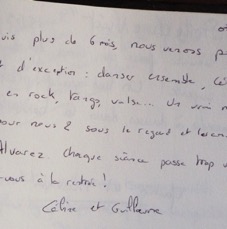 uis plus de 6 mois, nous venons p
d'exception : danser ensemble,
en rock, tango, valse... Un vrai m
pour nous 2 sous le regard et
Alvarez Chaque séance passe trop v
-vous à la rentrée !
Céline et Guillaume